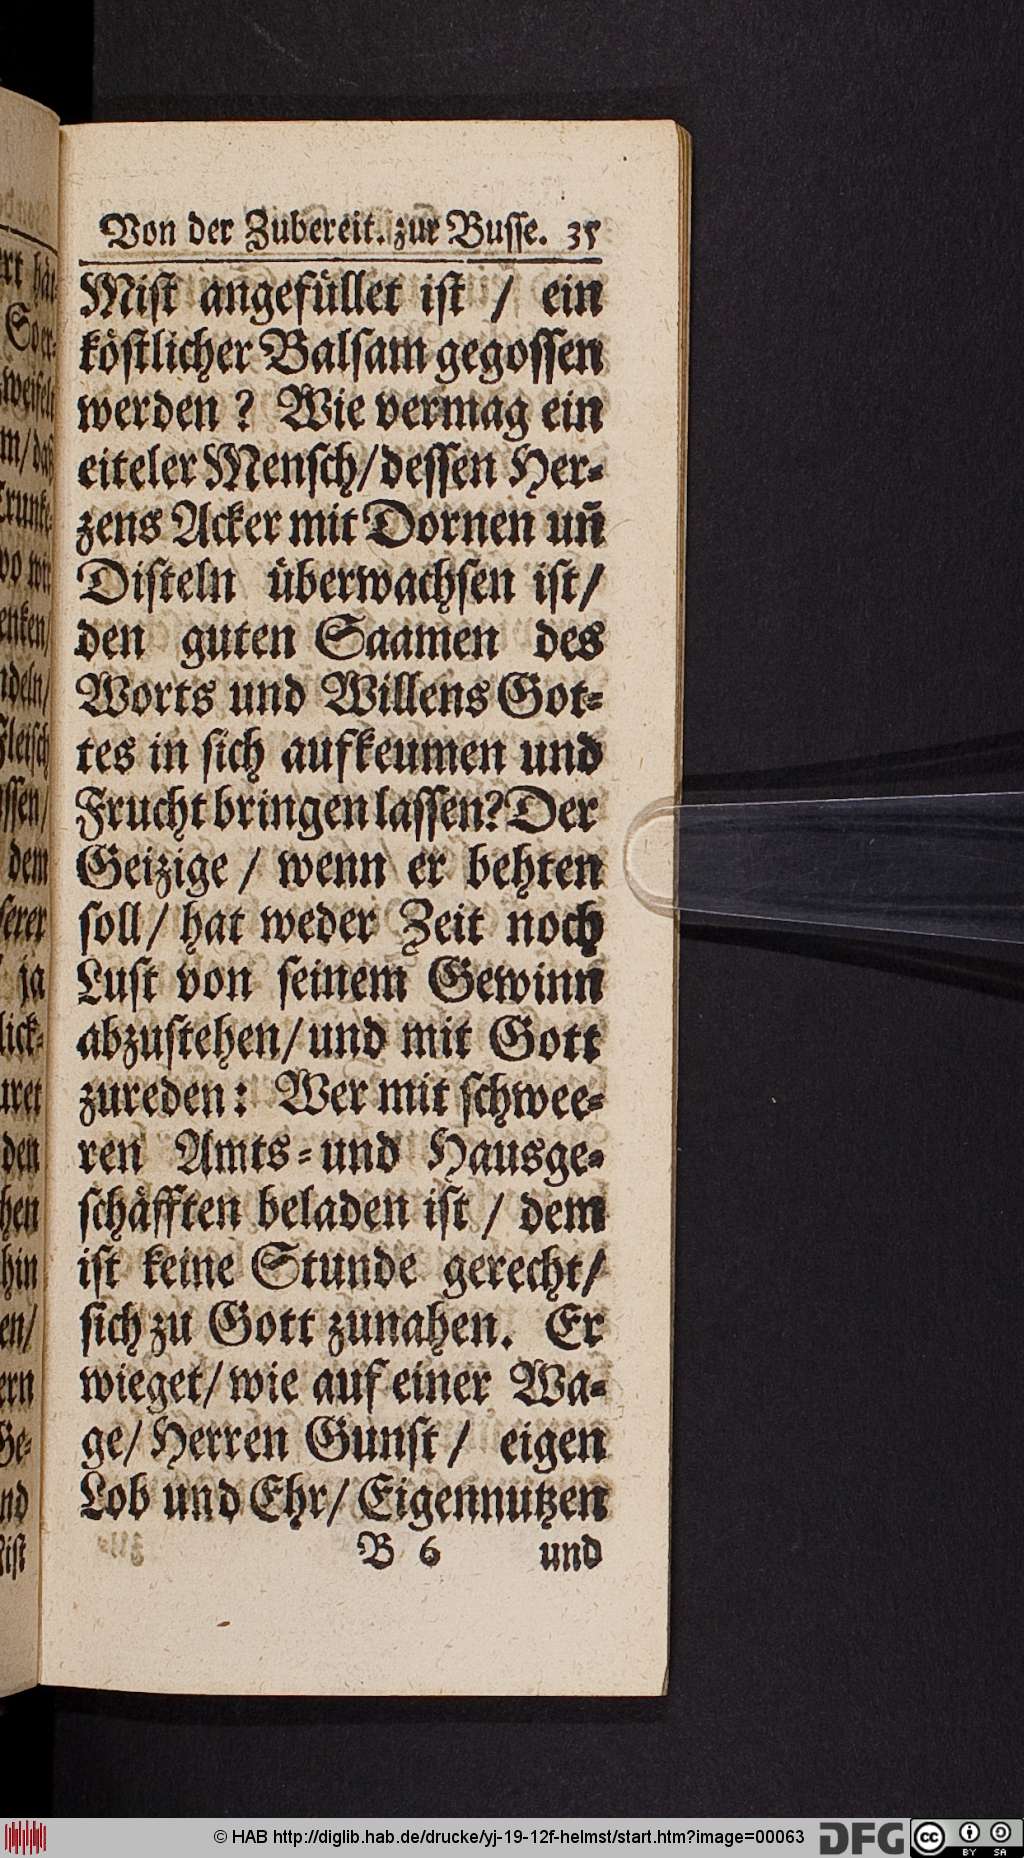 Von der Zubereit. zur Busse. 35
Mist angefüllet ist / ein
köstlicher Balsam gegossen
werden ? Wie vermag ein
eiteler Mensch/dessen Her-
zens Acker mit Dornen uñ
Disteln überwachsen ist/
den guten Saamen des
Worts und Willens Got-
tes in sich aufkeumen und
Frucht bringen lassen? Der
Geizige / wenn er behten
soll/ hat weder Zeit noch
Lust von seinem Gewinn
abzustehen/und mit Gott
zureden: Wer mit schwee-
ren Amts-und Hausge-
schäfften beladen ist / dem
ist keine Stunde gerecht/
sich zu Gott zunahen. Er
wieget/wie auf einer Wa-
ge/Herren Gunst / eigen
Lob und Ehr/ Eigennutzen
B 6 und
© HAB http://diglib.hab.de/drucke/yj-19-12f-helmst/start.htm?image=00063 DFG cc BY SA